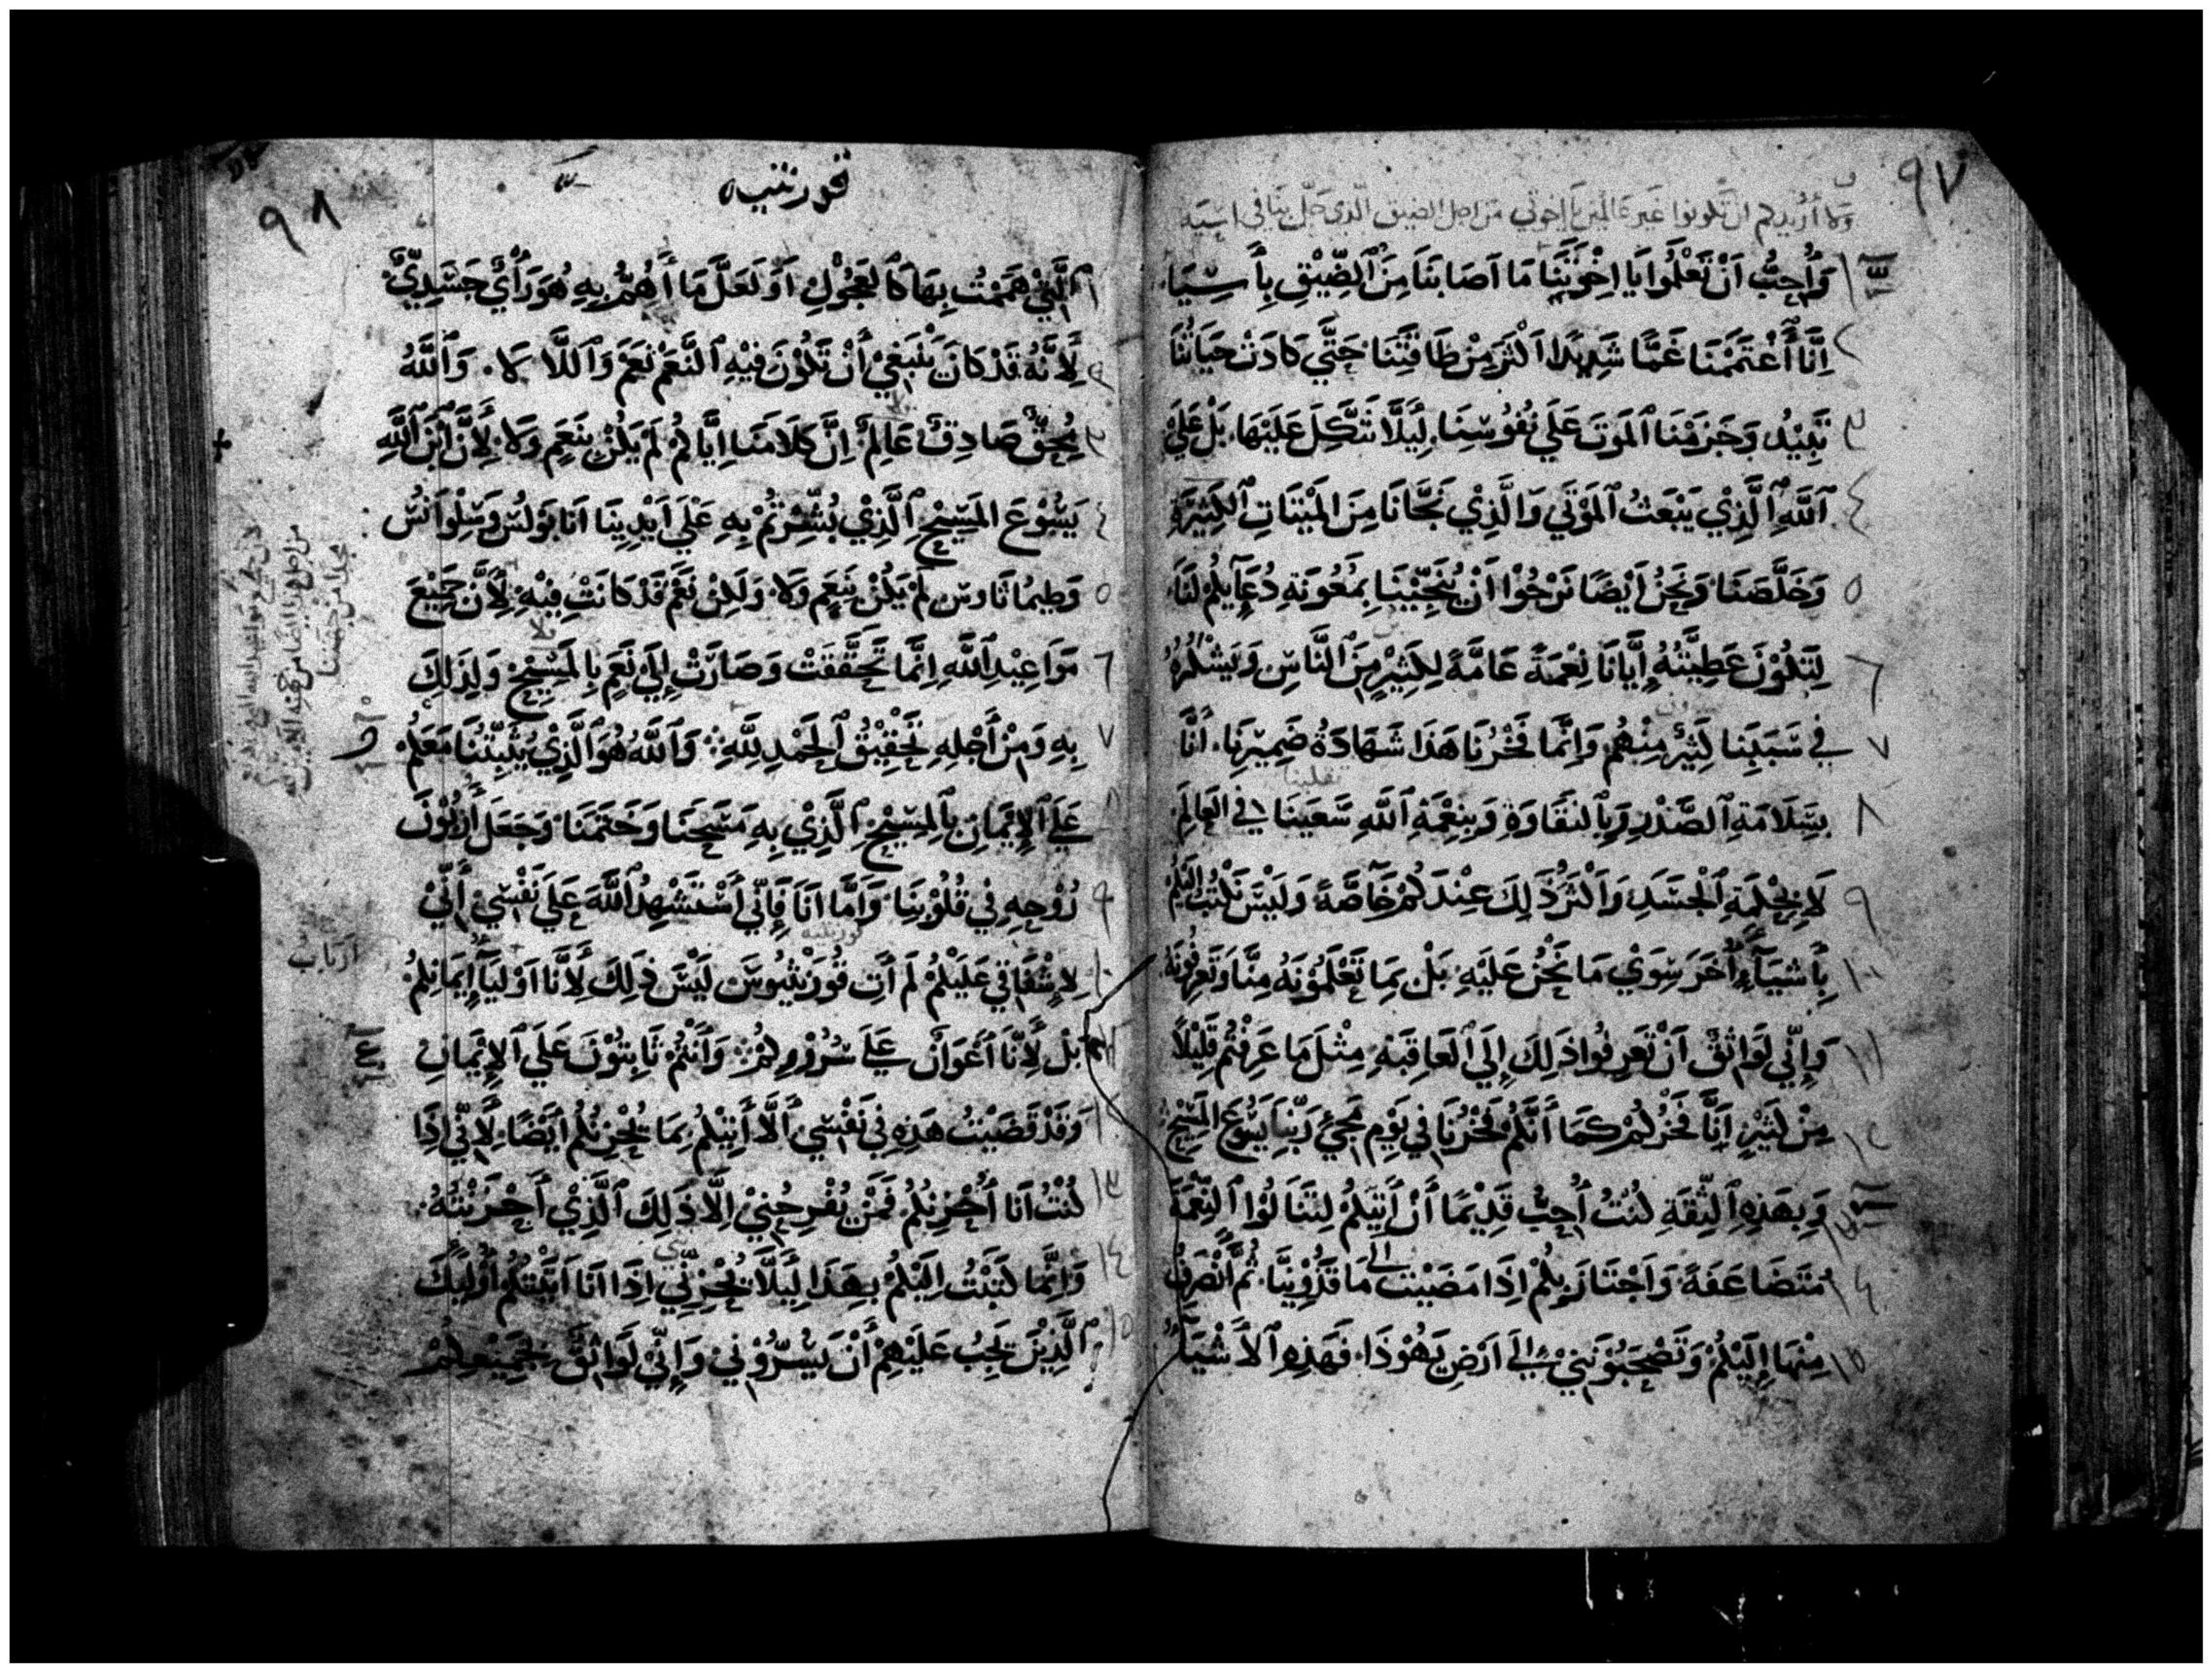 ٩٧
ولا أريدكم ان تكونوا غير عالمين يا إخوتي من اجل الضيق الذي حل بنا في اسيه
١ وَأُحِبُّ اَنْ تَعْلَمُوا يَا اِخْوَتَنَا مَا اَصَابَنَا مِنَ ٱلضِّيْقِ بِأَسِيَا
٢ اِنَّا ٱغْتَمَمْنَا غَمًّا شَدِيدًا اَكْثَرَ مِنْ طَاقَتِنَا حَتَّي كَادَتْ حَيَاتُنَا
٣ تَبِيْدُ وَجَزَمْنَا ٱلمَوتَ عَلَي نُفُوسِنَا. لِيَلَّا نَتَّكِلَ عَلَيْهَا. بَلْ عَلَيْ
٤ ٱللَّهِ ٱلَّذِيْ يَبْعَثُ ٱلمَوْتَي وَالَّذِيْ نَجَّانَا مِنَ المَيْتَاتِ ٱلكَثِيْرَةِ
٥ وَخَلَّصَنَا وَنَحْنُ اَيْضًا نَرْجُوْا اَنْ يُنَجِّيْنَا بِمَعُونَةِ دُعَآيِكُمْ لَنَا
٦ لِتَكُوْنَ عَطِيَّتُهُ إِيَّانَا نِعْمَةً عَامَّةً لِكَثِيْرٍ مِنَ ٱلنَّاسِ وَيَشْكُرُهُ
٧ فِي سَبَبِنَا كَثِيْرٌ مِنْهُم وَاِنَّمَا فَخْرُنَا هَذَا شَهَادَةُ ضَمِيْرِنَا. أَنَّا
٨ بِسَلَامَةِ ٱلصَّدْرِ وَبِالنَقَاوَةِ وَبِنِعْمَةِ ٱللَّهِ سَعَيْنَا فِي العَالَمِ
٩ لَا بِحِكْمَةِ ٱلْجَسَدِ وَاَكْثَرُ ذَلِكَ عِنْدَكُمْ خَآصَّةً وَلَيْسَ نَكْتُبُ اِلَيْكُمْ
١٠ بِأَشْيَآءٍ أُخَرَ سِوَيْ مَا نَحْنُ عَلَيْهِ بَلْ بِمَا تَعْلَمُوْنَهُ مِنَّا وَتَعْرِفُوْنَهُ
١١ وَإِنِّي لَوَاثِقٌ اَنْ تَعْرِفُوا ذَلِكَ إِلَي ٱلعَاقِبَةِ مِثْلَ مَا عَرِفْتُمْ قَلِيْلًا
١٢ مِنْ كَثِيْرٍ اَنَّا فَخْرُكُمْ كَمَا أَنَّكُمْ فَخْرُنَا فِي يَوْمِ مَجِيْ رَبِّنَا يَسُوْعَ المَسِيْحِ
١٣ وَبِهَذِهِ ٱلثِّقَةِ كُنْتُ أُحِبُّ قَدِيْمًا أَنْ اَتِيَكُمْ لِتَنَالُوْا ٱلنِّعْمَةَ
١٤ مُتَضَاعَفَةً وَاَجْتَازَ بِكُمْ اِذَا مَضَيْتُ الي مَاقَدُوْنِيَّا. ثُمَّ اَنْصَرِفُ
١٥ مِنْهَا إِلَيْكُمْ وَتَصْحَبُوْنَنِيْ اِلَي اَرْضِ يَهُوْذَا. فَهَذِهِ ٱلأَشْيَآءُ
٩٨
قورنثيه
١ ٱلَّتِيْ هَمَمْتُ بِهَا كَالعَجُوْلِ اَوَلَعَلَّ مَا أَهُمُّ بِهِ هُوَ رَأْيٌ جَسَدِيٌّ
٢ لِأَنَّهُ قَدْ كَانَ يَنْبَغِيْ أَنْ تَكُوْنَ فِيْهِ ٱلنَّعَمْ نَعَمْ وَٱللَّا لَا. وَٱللَّهُ
٣ مُحِقٌّ صَادِقٌ عَالِمٌ اِنَّ كَلَامَنَا اِيَّاكُمْ لَمْ يَكُنْ بِنَعَمٍ وَلَا لِأَنَّ ٱبْنَ ٱللَّهِ
٤ يَسُوْعَ المَسِيْحِ ٱلَّذِيْ بُشِّرْتُمْ بِهِ عَلَيَ اَيْدِيْنَا اَنَا بَوْلُسَ وَسِلْوَانُسَ
٥ وَطِيمُاثَاوسَ لَمْ يَكُنْ بِنَعَمٍ وَلَا. وَلَكِنْ نَعَمْ قَدْ كَانَتْ فِيْهِ لِأَنَّ جَمِيْعَ
٦ مَوَاعِيْدِ ٱللَّهِ اِنَّمَا تَحَقَّقَتْ وَصَارَتْ اِلَي نَعَمٍ بِالمَسِيْحِ وَلِذَلِكَ
٧ بِهِ وَمِنْ أَجْلِهِ تَحْقِيْقُ ٱلحَمْدِ لِلَّهِ وَٱللَّهُ هُوَ ٱلَّذِيْ يُثَبِّتُنَا مَعَكُمْ
٨ عَلَي ٱلإِيْمَانِ بِٱلمَسِيْحِ ٱلَّذِيْ بِهِ مَسَحَنَا وَخَتَمَنَا وَجَعَلَ أَرَبُوْنَ
٩ رُوْحِهِ فِي قُلُوْبِنَا وَاَمَّا اَنَا فَإِنِّي أَسْتَشْهِدُ ٱللَّهَ عَلَي نَفْسِيْ أَنِّيْ
١٠ لِإِشْفَاقِي عَلَيْكُمْ لَمْ أَتِ قُوْرَنْثِيُوسَ لَيْسَ ذَلِكَ لِأَنَّا اَوْلِيَآ إِيمَانِكُمْ
بَلْ لِأَنَّا أَعْوَانٌ عَلَي سُرُوْرِكُمْ وَأَنْتُمْ ثَابِتُوْنَ عَلَي ٱلإِيْمَانِ
وَقَدْ قَضَيْتُ هَذِهِ فِي نَفْسِي أَلَّا أَتِيَكُمْ بِمَا يُحْزِنُكُمْ أَيْضًا. لِأَنِّي اِذَا
١٣ كُنْتُ اَنَا أُحْزِنُكُمْ فَمَنْ يُفْرِحُنِيْ اِلَّا ذَلِكَ ٱلَّذِيْ أَحْزَنْتُهُ
١٤ وَاِنَّمَا كَتَبْتُ اِلَيْكُمْ بِهَذَا لِيَلَّا يُحْزِنِّي اِذَا اَنَا اَتَيْتُكُمْ أُوْلَيِكَ
١٥ ٱلَّذِيْنَ يَجِبُ عَلَيْهِمْ أَنْ يَسُرُّوْنِي وَإِنِّيْ لَوَاثِقٌ بِجَمِيْعِكُمْ